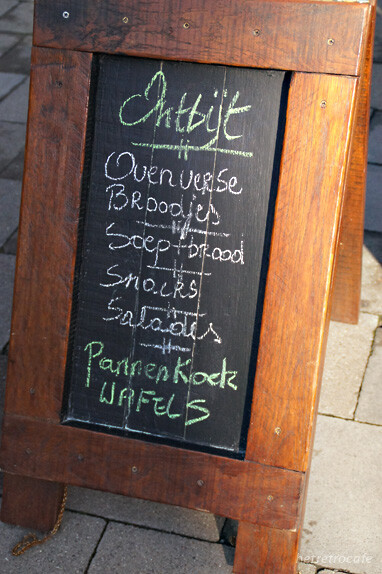 Ontbijt
Ovenverse
Broodjes
Soep-brood
Snacks
Salades
Pannenkoek
WAFELS